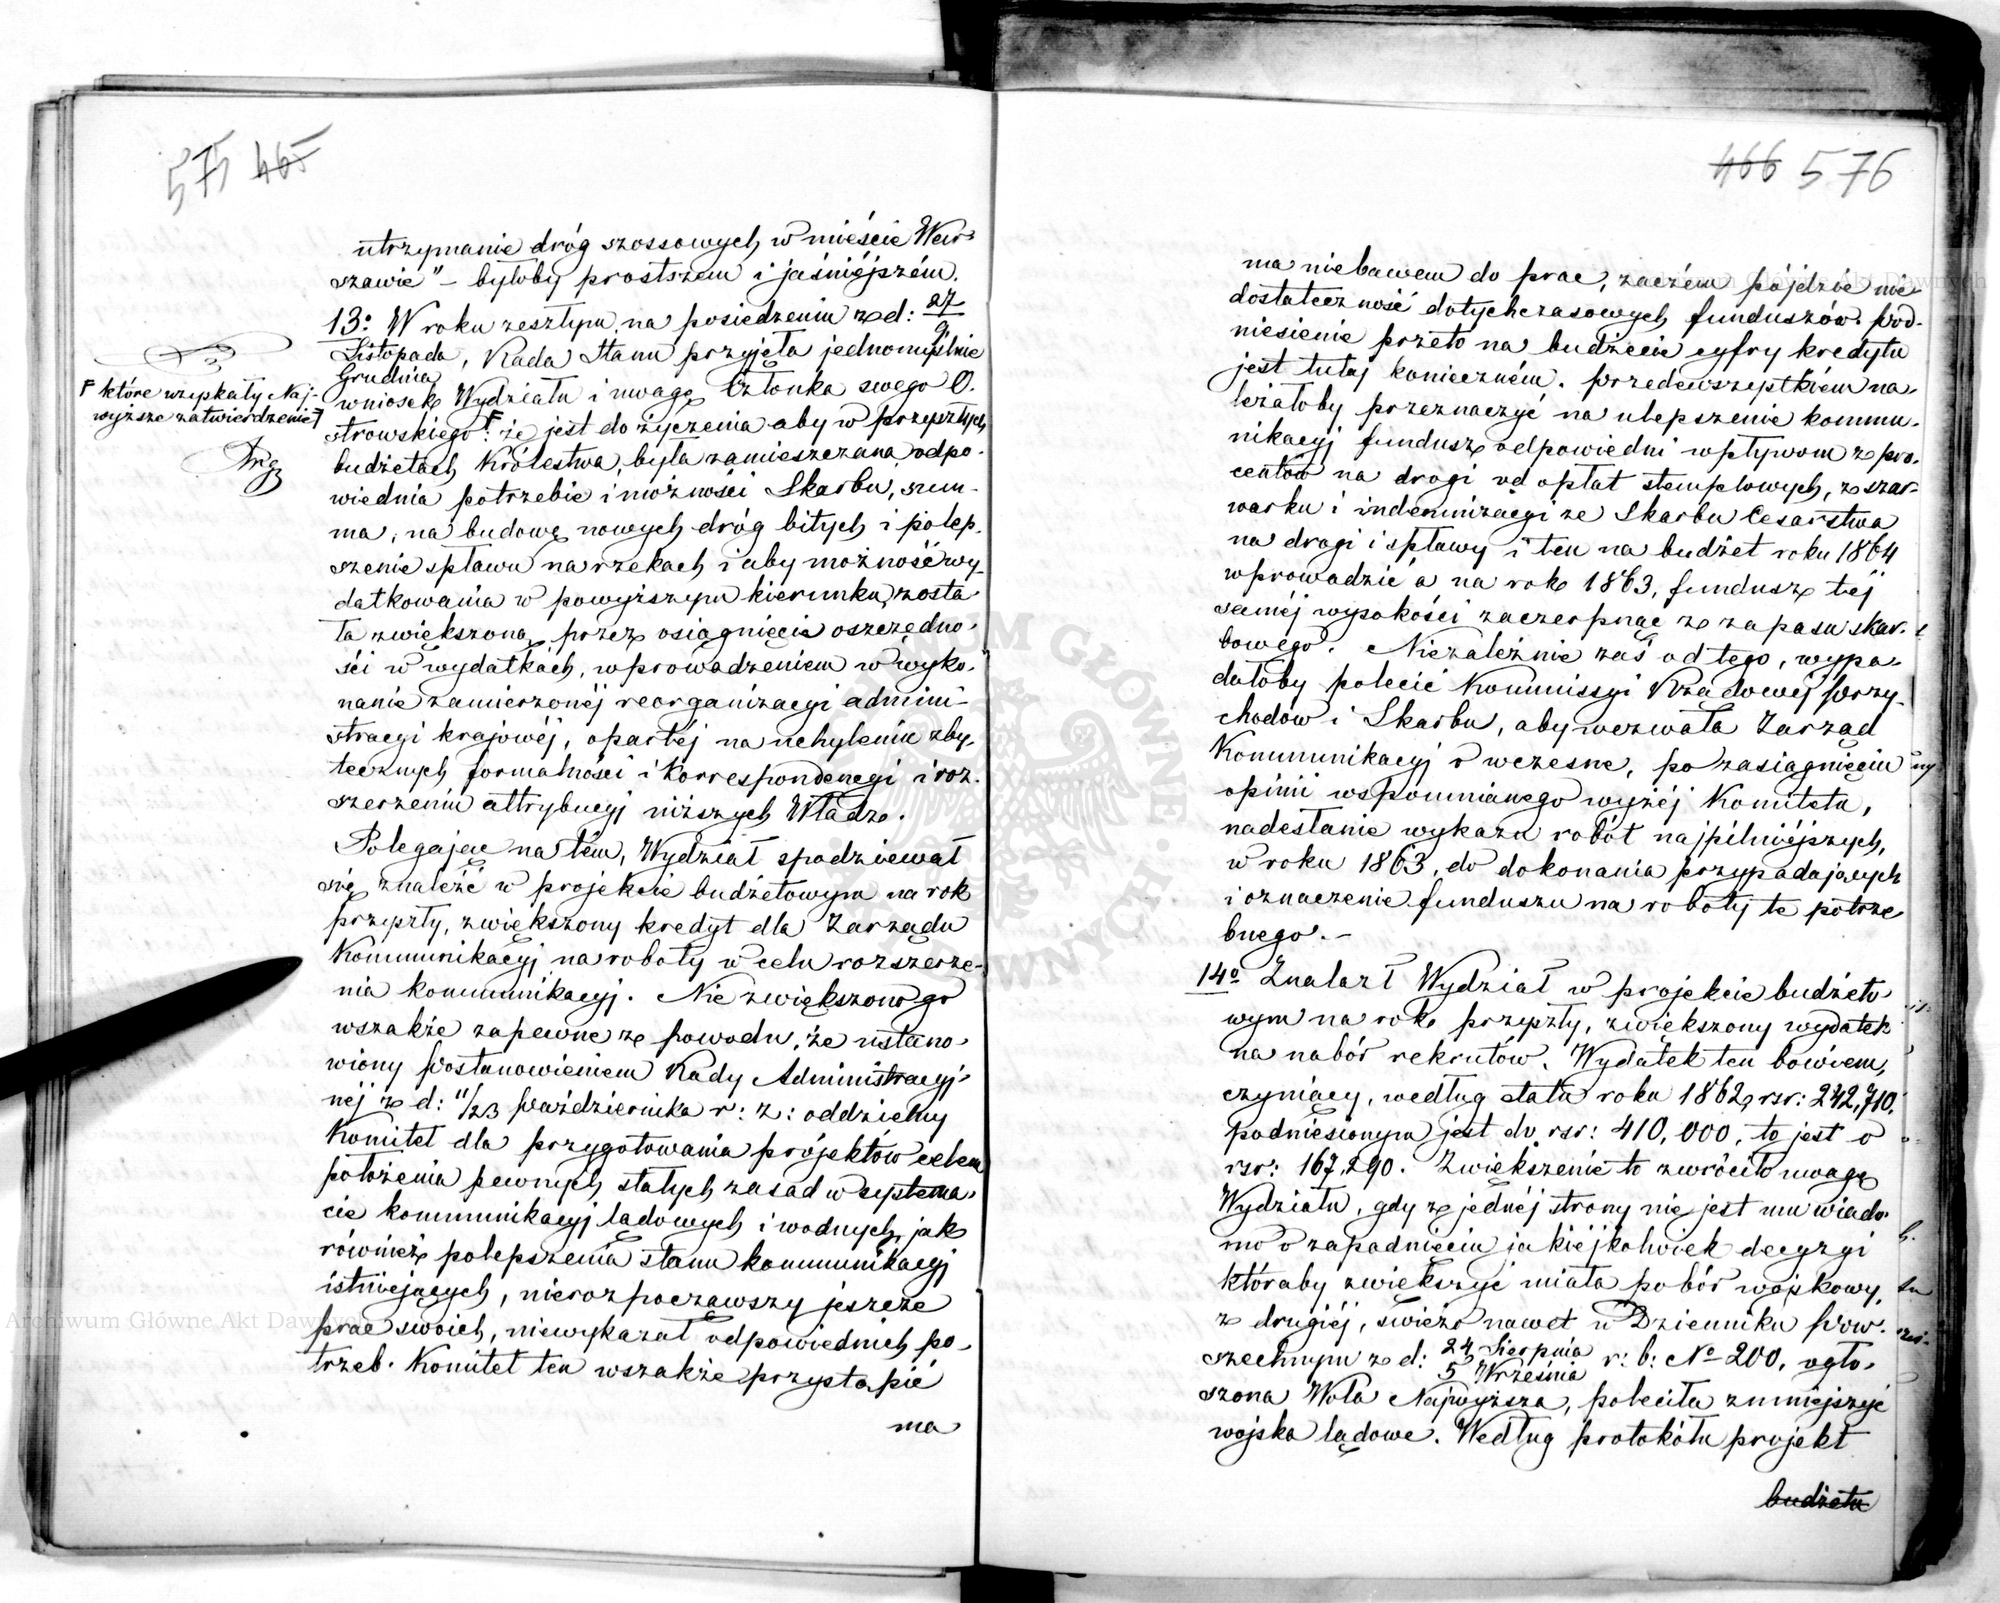 575 465
utrzymanie dróg szossowych w mieście War-
szawie" – byłoby prostszem i jaśniéjszém.
13o W roku zeszłym na posiedzeniu z d: 27/9
Listopada/Grudnia, Rada Stanu przyjęła jednomyślnie
wniosek Wydziału i uwagę Członka swego O.
strowskiego F: że jest do życzenia aby w przyszłych
F które uzyskały Naj-
wyższe zatwierdzenie F
budżetach Królestwa, była zamieszczana odpo-
wiednia potrzebie i możności Skarbu, sum-
ma, na budowę nowych dróg bitych i polep-
szenie spławu na rzekach i aby możność wy-
datkowania w powyższym kierunku, zosta-
ła zwiększoną przez osiągnięcie oszczędno-
ści w wydatkach, wprowadzeniem w wyko-
nanie zamierzonéj reorganizacyi admini-
stracyi krajowéj, opartéj na uchyleniu zby-
tecznych formalności i korrespondencyi i roz-
szerzeniu attrybucyj niższych Władz.
Polegając na tém, Wydział spodziewał
się znaleźć w projekcie budżetowym na rok
przyszły, zwiększony kredyt dla Zarządu
Kommunikacyj na roboty w celu rozszerze-
nia kommunikacyj. Nie zwiększono go
wszakże zapewne z powodu, że ustano-
wiony Postanowieniem Rady Administracyj-
néj z d: 11/23 Października r: z: oddzielny
Komitet dla przygotowania projektów celem
położenia pewnych stałych zasad w systema-
cie kommunikacyj lądowych i wodnych jak
również polepszenia stanu kommunikacyj
istniejących, nierozpocząwszy jeszcze
prac swoich, niewykazał odpowiednich po-
trzeb. Komitet ten wszakże przystąpić
ma
466 576
ma niebawem do prac, zaczém pójdzie nie-
dostateczność dotychczasowych funduszów. Pod-
niesienie przeto na budżecie cyfry kredytu
jest tutaj konieczném. Przedewszystkiém na-
leżałoby przeznaczyć na ulepszenie kommu-
nikacyj fundusz odpowiedni wpływom z pro-
centów na drogi od opłat stemplowych, z szar-
warku i indemnizacyi ze Skarbu Cesarstwa
na drogi i spławy i ten na budżet roku 1864
wprowadzić a na rok 1863, fundusz téj
saméj wysokości zaczerpnąć z zapasu skar-
bowego. Niezależnie zaś od tego, wypa-
dałoby polecić Kommissyi Rządowéj Przy-
chodów i Skarbu, aby wezwała Zarząd
Kommunikacyj o wczesne, po zasiągnięciu
opinii wspomnianego wyżéj Komitetu,
nadesłanie wykazu robót najpilniéjszych,
w roku 1863, do dokonania przypadających
i oznaczenie funduszu na roboty te potrze
bnego. –
14o Znalazł Wydział w projekcie budżeto-
wym na rok przyszły, zwiększony wydatek
na nabór rekrutów. Wydatek ten bowiem,
czyniący, według etatu roku 1862, rsr: 242,710,
podniesionym jest do rsr: 410,000, to jest o
rsr: 167,290. Zwiększenie to zwróciło uwagę
Wydziału, gdy z jednéj strony nie jest mu wiado-
mo o zapadnięciu jakiéjkolwiek decyzyi
któraby zwiększyć miała pobór wojskowy,
z drugiéj, świeżo nawet w Dzienniku Pow-
szechnym z d: 24 Sierpnia/5 Września r: b: No 200, ogło-
szona Wola Najwyższa, poleciła zmniejszyć
wojska lądowe. Według protokółu projekt
budżetu
Archiwum Główne Akt Dawnych